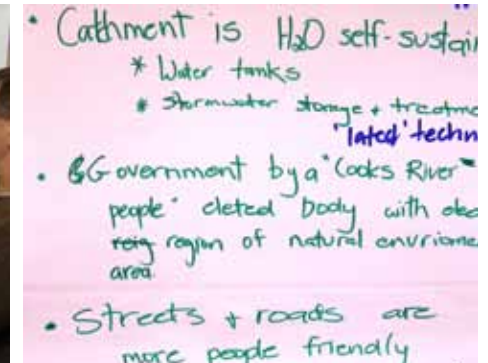 • Cathment is H2O self-sustain
* Water tanks
* Stormwater storage + treatme
"lated" techn
• Government by a "Cooks River
people" cleted body with
region of natural envriome
area
• Streets + roads are
more people friendly